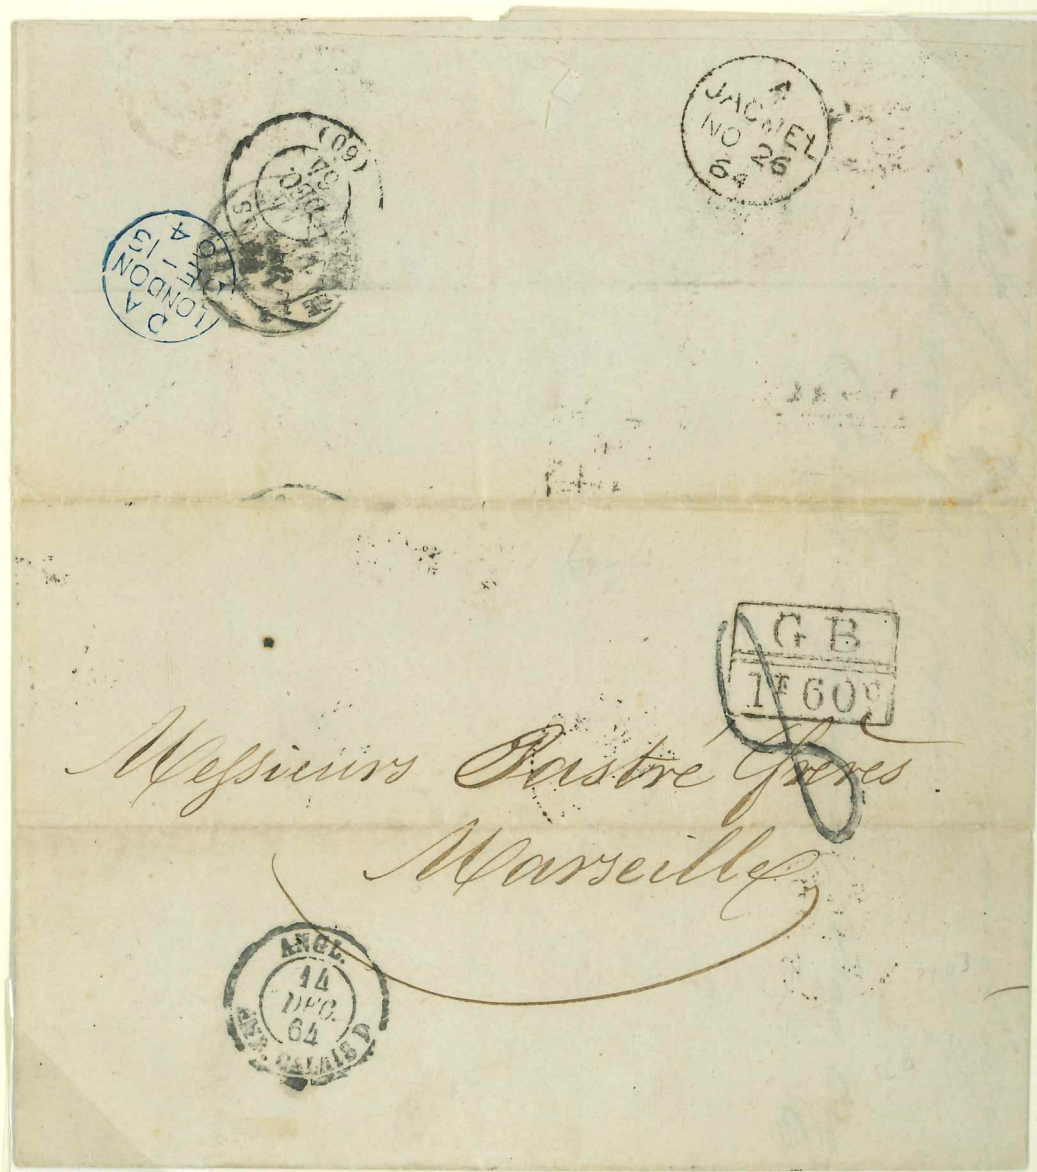 A
JACMEL
NO 26
64
(60)
DEC.
64
D A
LONDON
DE-13
64
G B
1F 60c
Messieurs Pastré frères
Marseille
ANGL.
14
DEC.
64
AMB. CALAIS D